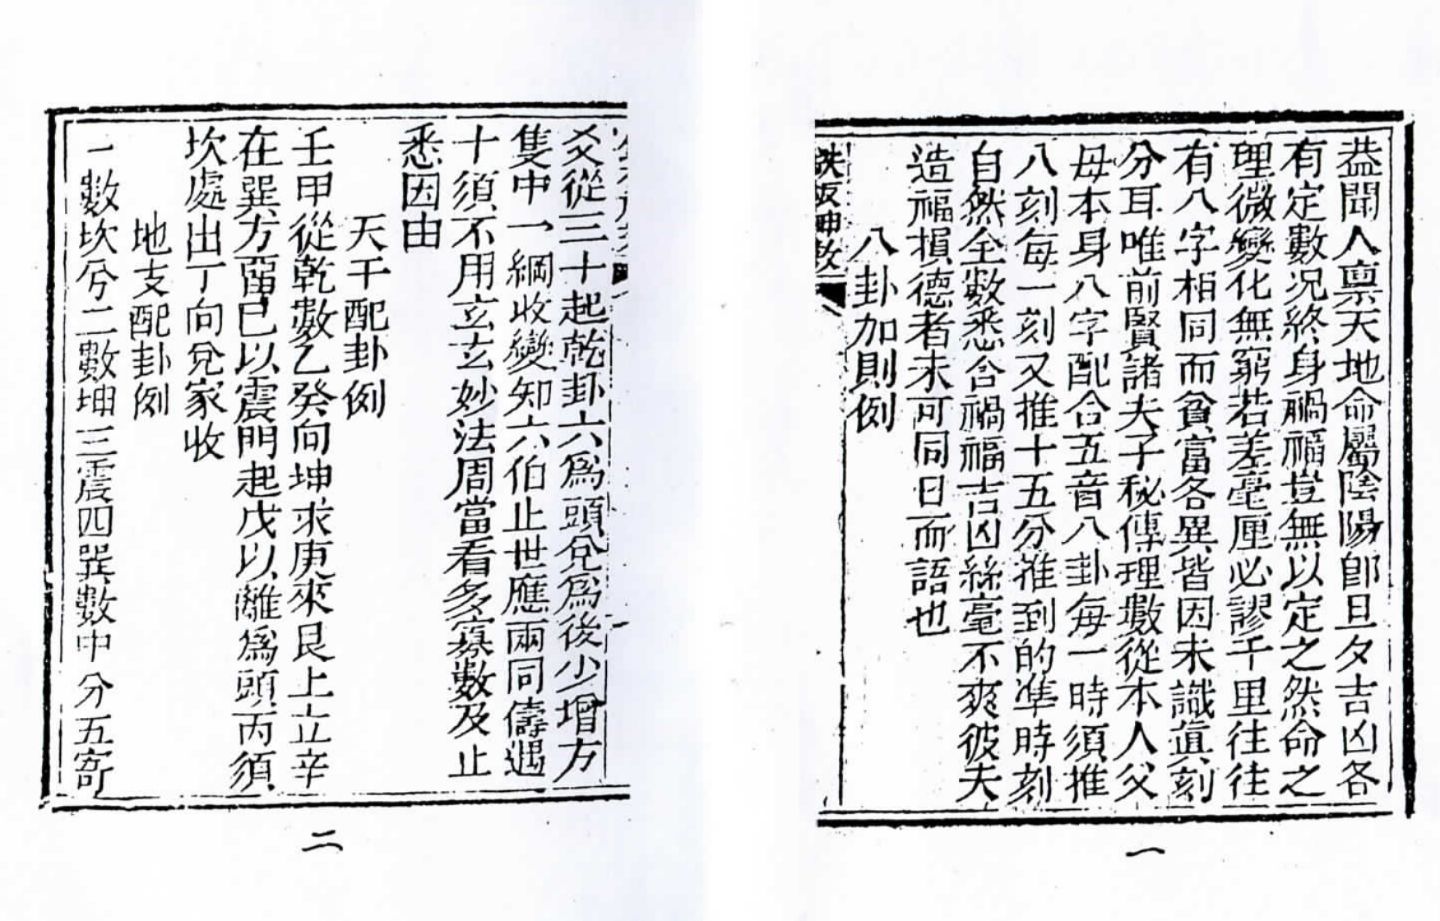 葢聞人禀天地命屬陰陽卽旦夕吉凶各
有定數况終身禍福豈無以定之然命之
理微變化無窮若差毫厘必謬千里往往
有八字相同而貧富各異皆因未識眞刻
分耳唯前賢諸夫子秘傳理數從本人父
母本身八字配合五音八卦每一時須推
八刻每一刻又推十五分推到的準時刻
自然全數悉合禍福吉凶絲毫不爽彼夫
造福損德者未可同日而語也
八卦加則例
鉄板神数
爻從三十起乾卦六爲頭兌爲後少增方
隻中一綱收變知六伯止世應兩同儔遇
十須不用玄玄妙法周當看多寡數及止
悉因由
天干配卦例
壬甲從乾數乙癸向坤求庚來艮上立辛
在巽方畱已以震門起戊以離爲頭丙須
坎處出丁向兌家收
地支配卦例
一數坎兮二數坤三震四巽數中分五寄
一
二